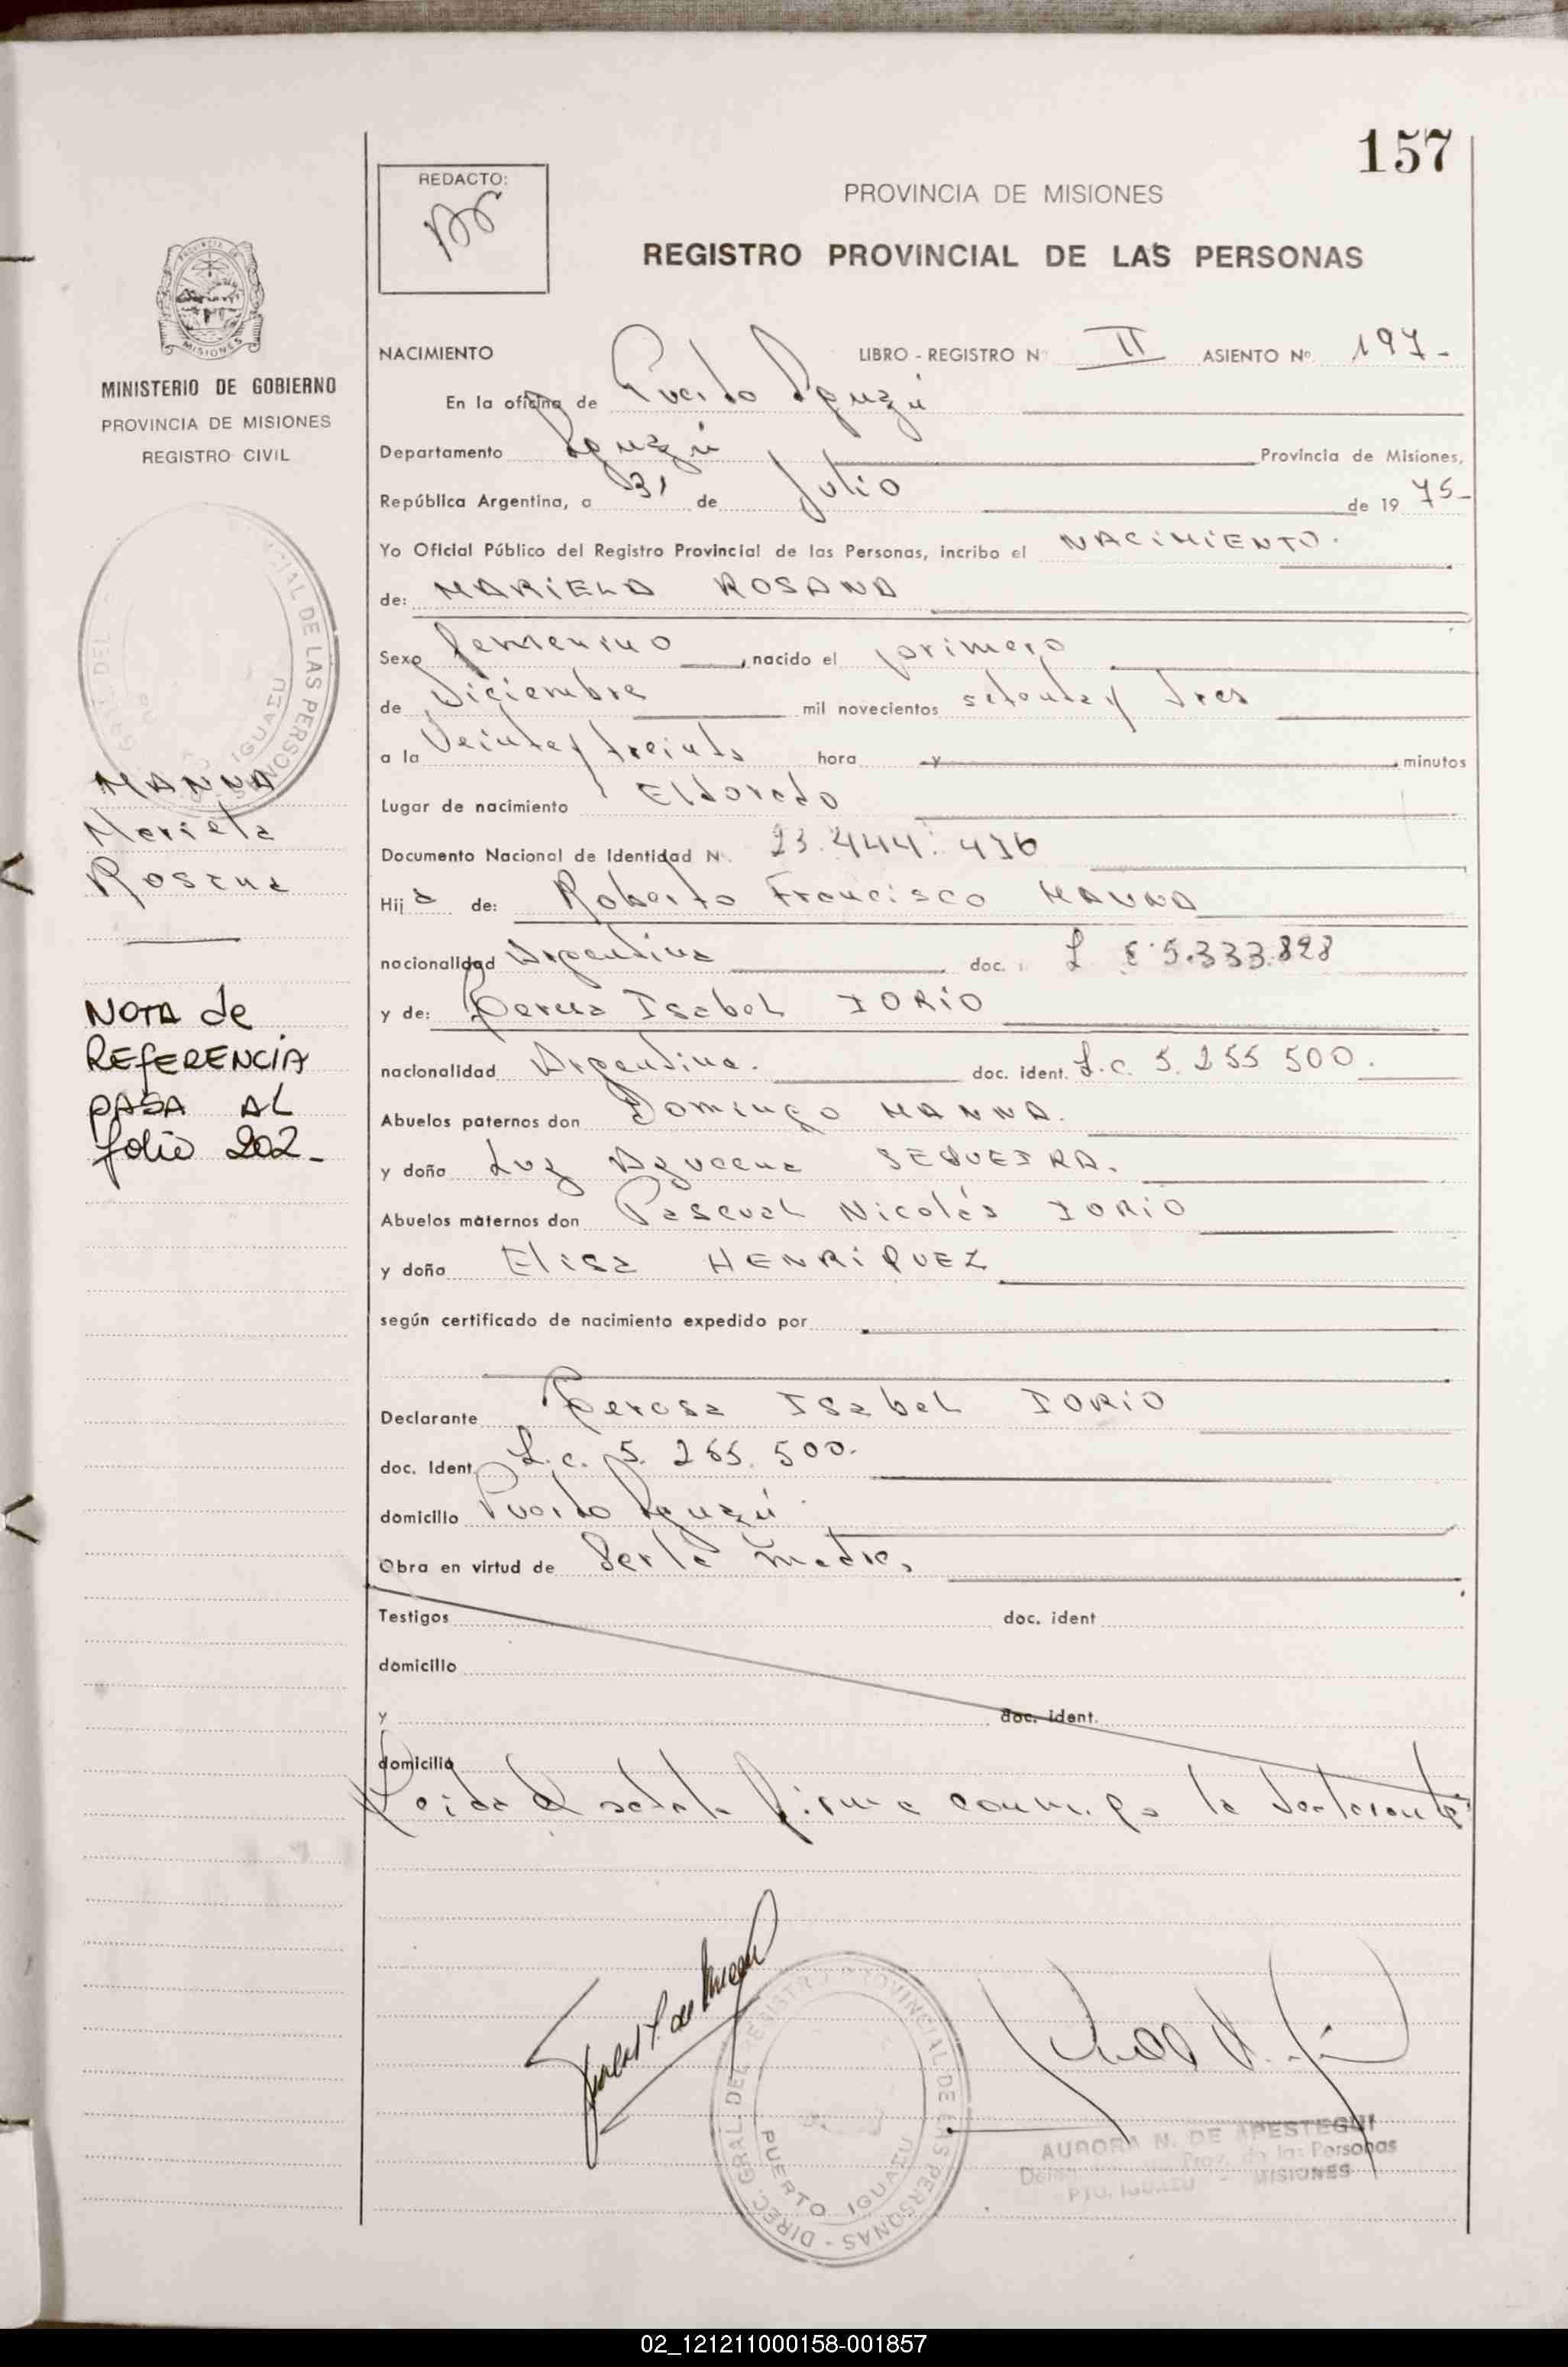 157
REDACTO:
PROVINCIA DE MISIONES
REGISTRO PROVINCIAL DE LAS PERSONAS
MISIONES
MINISTERIO DE GOBIERNO
PROVINCIA DE MISIONES
REGISTRO CIVIL
NACIMIENTO LIBRO - REGISTRO Nº II ASIENTO Nº 197-
En la oficina de Puerto Iguazú
Departamento Iguazú Provincia de Misiones,
República Argentina, a 31 de Julio de 1975-
Yo Oficial Público del Registro Provincial de las Personas, incribo el NACIMIENTO.
de: MARIELA ROSANA
Sexo femenino, nacido el primero
de Diciembre mil novecientos setenta y tres
a la Veinte y treinta hora y minutos
Lugar de nacimiento Eldorado
Documento Nacional de Identidad Nº 23.444.
Hija de: Roberto Francisco MANNA
nacionalidad Argentina doc. : L E 5.333.828
y de: Teresa Isabel IORIO
nacionalidad Argentina. doc. ident. L.c. 5.255 500.
Abuelos paternos don Domingo MANNA.
y doña Luz Azucena SEQUEIRA.
Abuelos maternos don Pascual Nicolás IORIO
y doña Elisa HENRIQUEZ
según certificado de nacimiento expedido por
Declarante Teresa Isabel IORIO
doc. Ident. L.c. 5. 255. 500.
domicilio Puerto Iguazú.
Obra en virtud de Ser la madre,
Testigos doc. ident
domicilio
y doc. ident.
domicilio
Leida el acta la firma conmigo la declarante
MANNA
Mariela
Rosana
NOTA de
REfERENCIA
PASA AL
folio 202-
DIREC. GRAL. DEL REGISTRO PROVINCIAL DE LAS PERSONAS -
PUERTO IGUAZU
AURORA N. DE APESTEGUI
Prov. de las Personas
PTO. IGUAZU - MISIONES
02_121211000158-001857